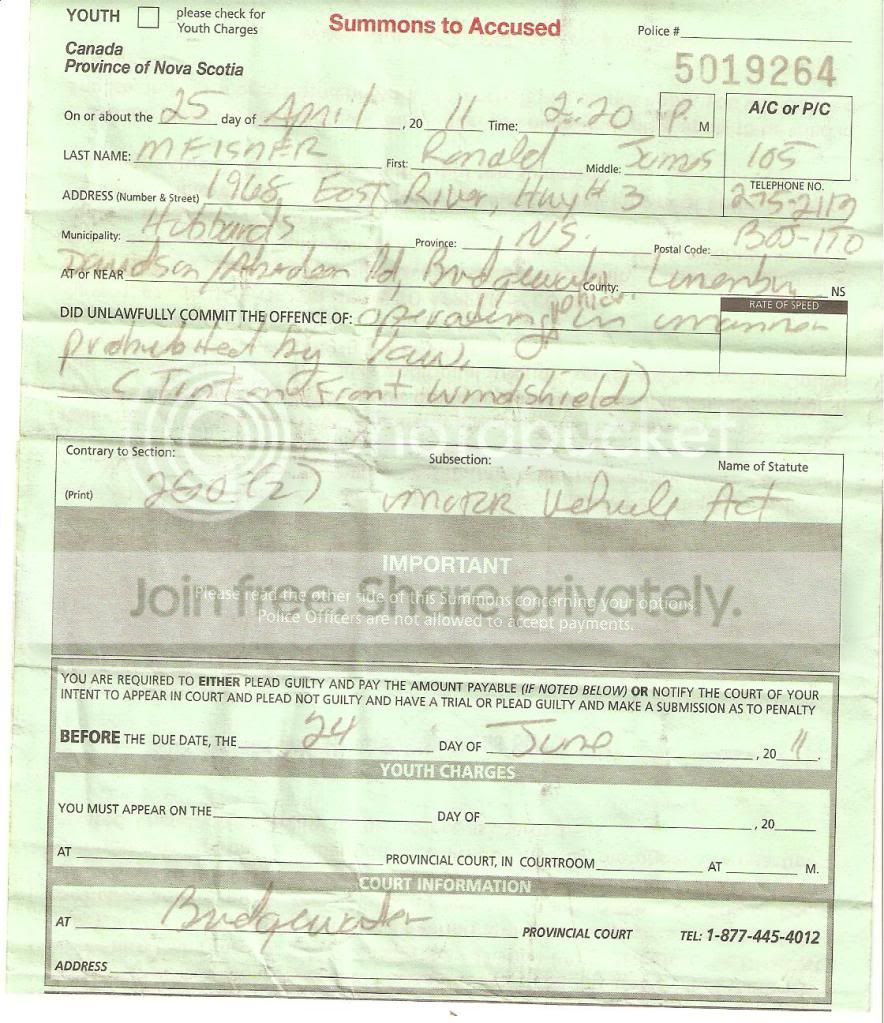 YOUTH please check for
Youth Charges
Summons to Accused
Police #
Canada
Province of Nova Scotia
5019264
On or about the 25 day of April, 20 11 Time: 2:20 P. M
A/C or P/C
105
LAST NAME: MEISNER First: Ronald Middle: James
ADDRESS (Number & Street) 1968 East River, Hwy # 3
TELEPHONE NO.
275-2113
Municipality: Hubbards Province: NS. Postal Code: B0J-1T0
AT or NEAR Davidson/Aberdeen Rd, Bridgewater County: Lunenburg NS
RATE OF SPEED
DID UNLAWFULLY COMMIT THE OFFENCE OF: operating vehicle in manner
prohibited by law,
(Tint on Front windshield)
photobucket
Contrary to Section: Subsection: Name of Statute
(Print) (2) motor Vehicle Act
IMPORTANT
Please read the other side of this Summons concerning your options.
Police Officers are not allowed to accept payments.
Join free. Share privately.
YOU ARE REQUIRED TO EITHER PLEAD GUILTY AND PAY THE AMOUNT PAYABLE (IF NOTED BELOW) OR NOTIFY THE COURT OF YOUR
INTENT TO APPEAR IN COURT AND PLEAD NOT GUILTY AND HAVE A TRIAL OR PLEAD GUILTY AND MAKE A SUBMISSION AS TO PENALTY
BEFORE THE DUE DATE, THE 24 DAY OF June, 20 11.
YOUTH CHARGES
YOU MUST APPEAR ON THE DAY OF , 20
AT PROVINCIAL COURT, IN COURTROOM AT M.
COURT INFORMATION
AT Bridgewater PROVINCIAL COURT TEL: 1-877-445-4012
ADDRESS